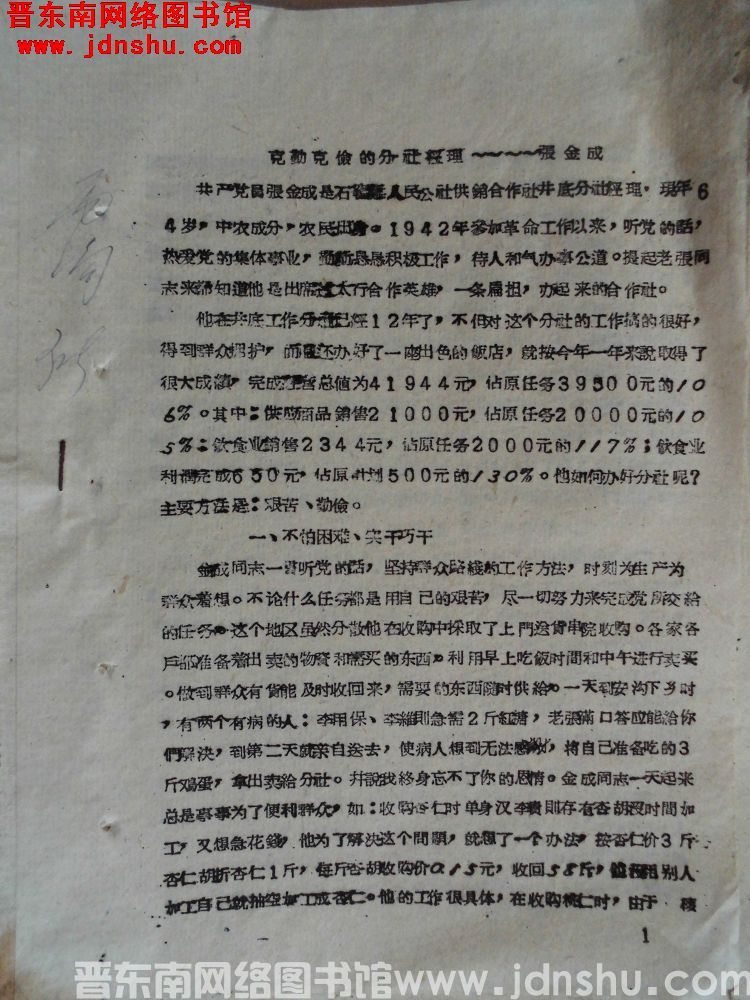 晋东南网络图书馆
www.jdnshu.com
克勤克儉的分社経理————張金成
共产党員張金成是石人民公社供銷合作社井底分社経理。現年6
4岁，中农成分，农民出身。1942年参加革命工作以来，听党的話，
热爱党的集体事业，勤勤恳恳积极工作，待人和气办事公道。提起老張同
志来都知道他是出席过太行合作英雄，一条扁担，办起来的合作社。
他在井底工作分社已経12年了，不但对这个分社的工作搞的很好，
得到群众拥护，而且还办好了一座出色的飯店，就按今年一年来説取得了
很大成績，完成営总値为41944元，佔原任务39500元的10
6%。其中：供应商品銷售21000元，佔原任务20000元的10
5%；飲食业銷售2344元，佔原任务2000元的117%；飲食业
利潤完成650元，佔原計划500元的130%。他如何办好分社呢？
主要方法是：艰苦、勤儉。
一、不怕困难、实干巧干
金成同志一貫听党的話，坚持群众路綫的工作方法，时刻为生产为
群众着想。不论什么任务都是用自己的艰苦，尽一切努力来完成党所交給
的任务。这个地区虽然分散他在收购中採取了上門送貨串院收购。各家各
戶都准备着出卖的物資和需买的东西。利用早上吃飯时间和中午进行卖买
。做到群众有貨能及时收回来，需要的东西随时供給。一天到安沟下乡时
，有两个有病的人：李用保、李維則急需2斤紅薯，老張滿口答应能給你
們解决，到第二天就亲自送去，使病人想到无法感激，将自己准备吃的3
斤鸡蛋，拿出卖給分社。并說我終身忘不了你的恩情。金成同志一天起来
总是事事为了便利群众，如：收购杏仁时单身汉李貴則存有杏胡没时间加
工，又想急花錢，他为了解决这个問題，就想了一个办法，按杏仁价3斤
杏仁胡折杏仁1斤，每斤杏胡收购价0.15元，收回58斤，他別人
加工自己就抽空加工成杏仁。他的工作很具体，在收购桃仁时，由于 核
1
晋东南网络图书馆www.jdnshu.com